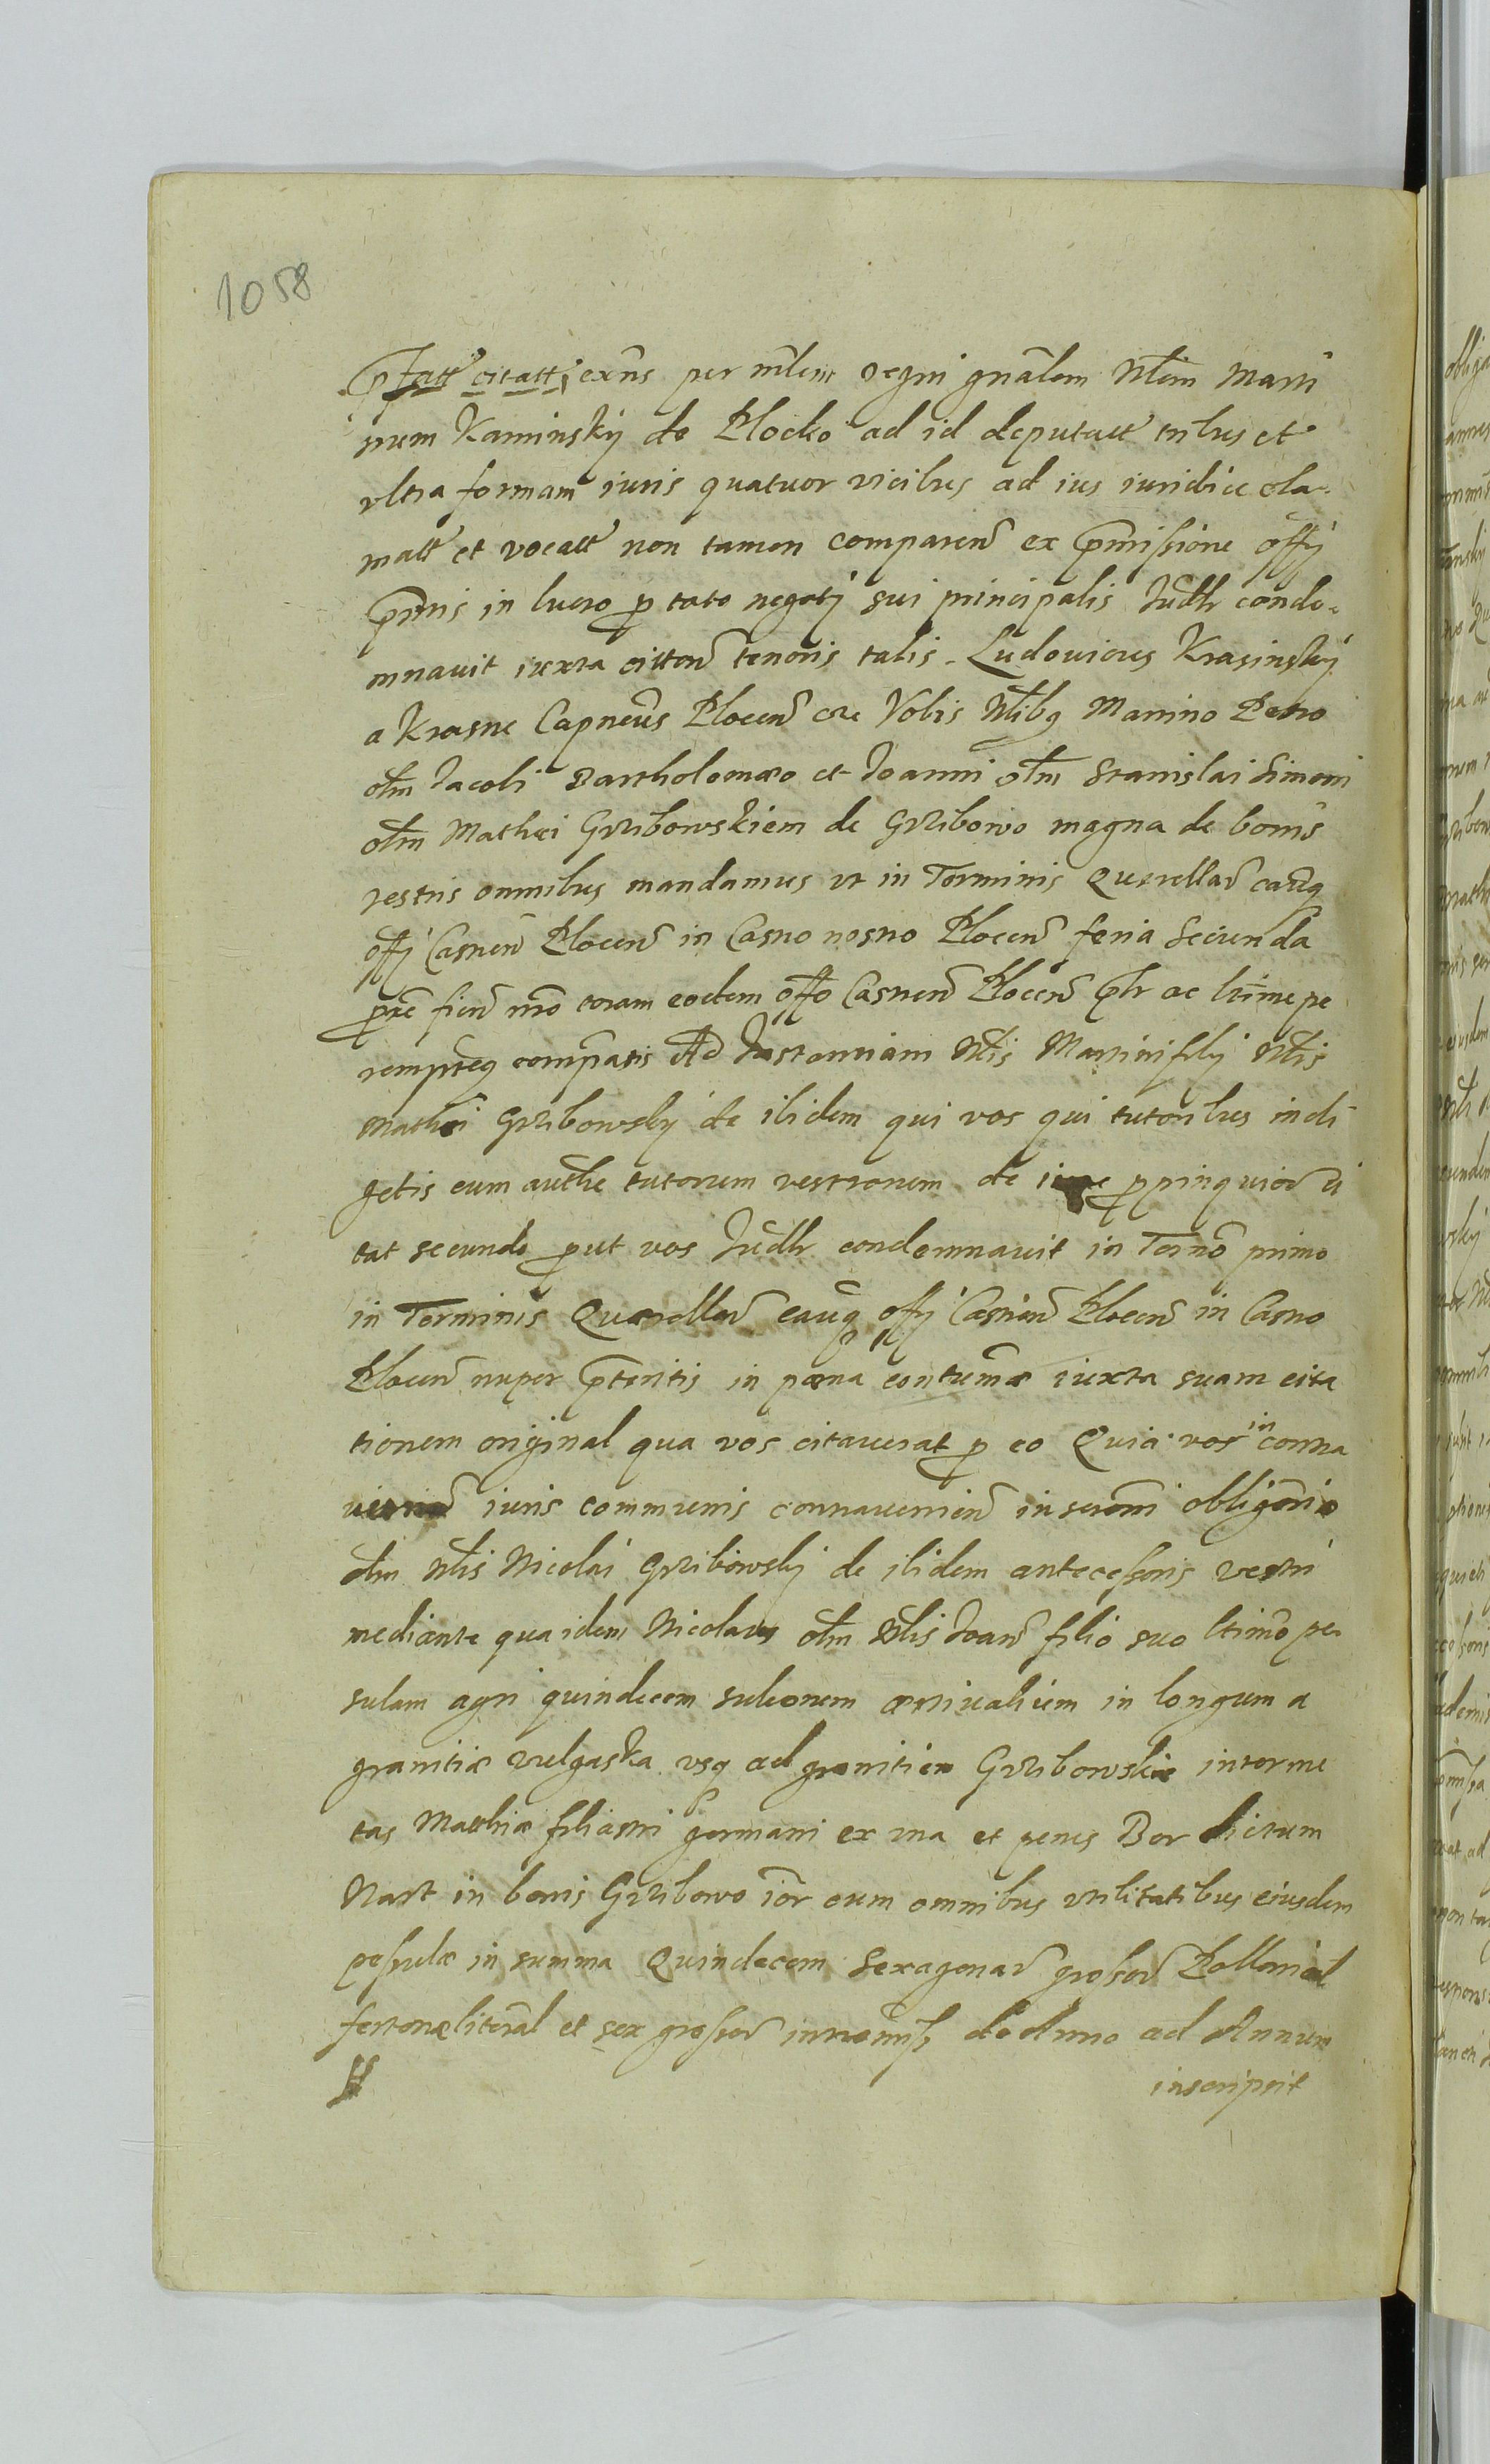 1058
Pfatt citatt exns per mlem regni gnalem Nlem Marti
num Kaminsky de Plocko ad id deputatt tribus et
ultra formam iuris quatuor vicibus ad ius iuridice cla-
matt et vocatt non tamen comparen ex pmissione offy
pntis in lucro p toto negoty sui principalis Judlr conde-
mnavit iuxta citton tenoris talis. Ludovicus Krasinsky
a Krasne Capneus Plocen etc Vobis Nlibq Martino Petro
olim Jacobi Bartholomæo et Joanni olm Stanislai Simoni
olm Mathei Grzibowskiem de Grzibowo magna de bonis
vestris omnibus mandamus ut in Terminis Querellar caucq
offy Castren Plocen in Castro nostro Plocen feria secunda
pxe fien nro coram eodem offo Castren Plocen plr ac ltime pe
remptieq compatis Ad Instantiam Nlis Martini fily Nlis
Mathei Grzibowsky de ibidem qui vos qui tutoribus indi
getis cum authe tutorum vestrorum de iure ppinquior ci
tat secundo put vos Judlr condemnavit in Termo primo
in Terminis Querellar cauq offy Castren Plocen in Castro
Plocen nuper pteritis in pæna contumæ iuxta suam cita
tionem original qua vos citaverat p eo Quia vos in contra
venien iuris communis contravenien inscrõni obligõnis
olm Nlis Nicolai Grzibowsky de ibidem antecessoris vestri
mediante qua idem Nicolaus olm Nlis Joan filio suo ltimo pe
sulam agri quindecem sulconem æstivalium in longum a
granitia vulgaska usq ad granitiem Grzibowskie interme
tas Mathiæ filiastri germani ex una et penes Bor dictum
Nart in bonis Grzibowo ior cum omnibus utilitatibus eiusdem
pessulæ in summa Quindecem Sexagenar grossor Pollonical
fertonæ literal et sex grossor intromiss de Anno ad Annum
inscripsit